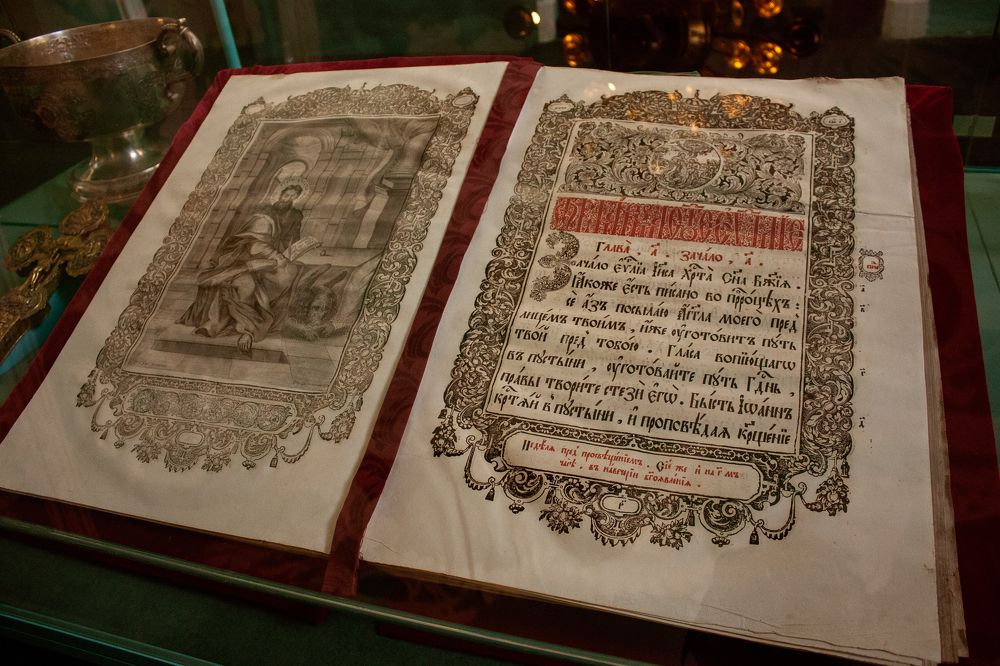 Глава̀ . а҃ . Зача́ло , а҃ .
Зача́ло є҆ѵⷢ҇лїѧ І҆и҃са Хрⷭ҇та̀ Сн҃а Бж҃їѧ .
Ꙗ҆́коже є҆́сть пи́сано во прⷪ҇ро́цѣхъ :
сѐ а҆́зъ посыла́ю а҆́гг҃ла моего̀ пред̾
лице́мъ твои́мъ , и҆́же ᲂу҆гото́витъ пу́ть
тво́й пред̾ тобо́ю . Гла́съ вопїю́щагѡ
въ пꙋсты́ни , ᲂу҆гото́вайте пу́ть Гдⷭ҇нь ,
пра́вы твори́те стезѝ є҆гѡ̀ . Бы́сть І҆ѡа́ннъ
крⷭ҇тѧ́й въ пꙋсты́ни , и҆ проповѣ́даѧ крⷭ҇ще́нїе
Недѣ́лѧ пред̾ просвѣще́нїемъ . Сїе́ же и҆ на г҃мъ
часѣ̀ , въ наве́черїи бг҃оѧвле́нїѧ .